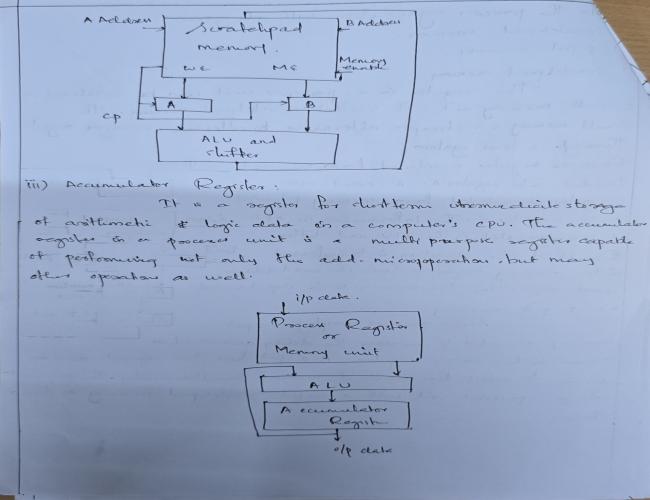 A Address
Scratchpad
B Address
memory.
Memory
enable
WE
ME
A
B
CP
ALU and
shifter
iii) Accumulator Register:
It is a register for shortterm intermediate storage
of arithmetic & logic data in a computer's CPU. The accumulator
register in a process unit is a multi purpose register capable
of performing not only the add. microoperation. but may
other operations as well.
i/p data.
Process Register
or
Memory unit
ALU
Accumulator
Regist.
o/p data